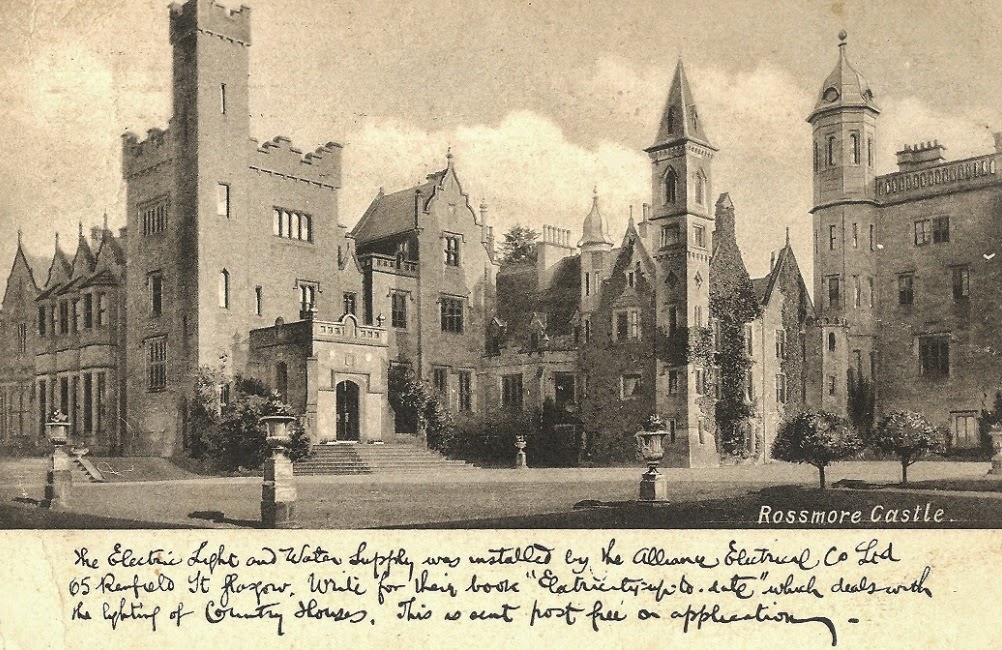 Rossmore Castle.
The Electric Light and Water Supply was installed by the Alliance Electrical Co Ltd
65 Renfield St Glasgow. Write for their book "Electricity-up-to-date" which deals with
the lighting of Country Houses. This is sent post free on application